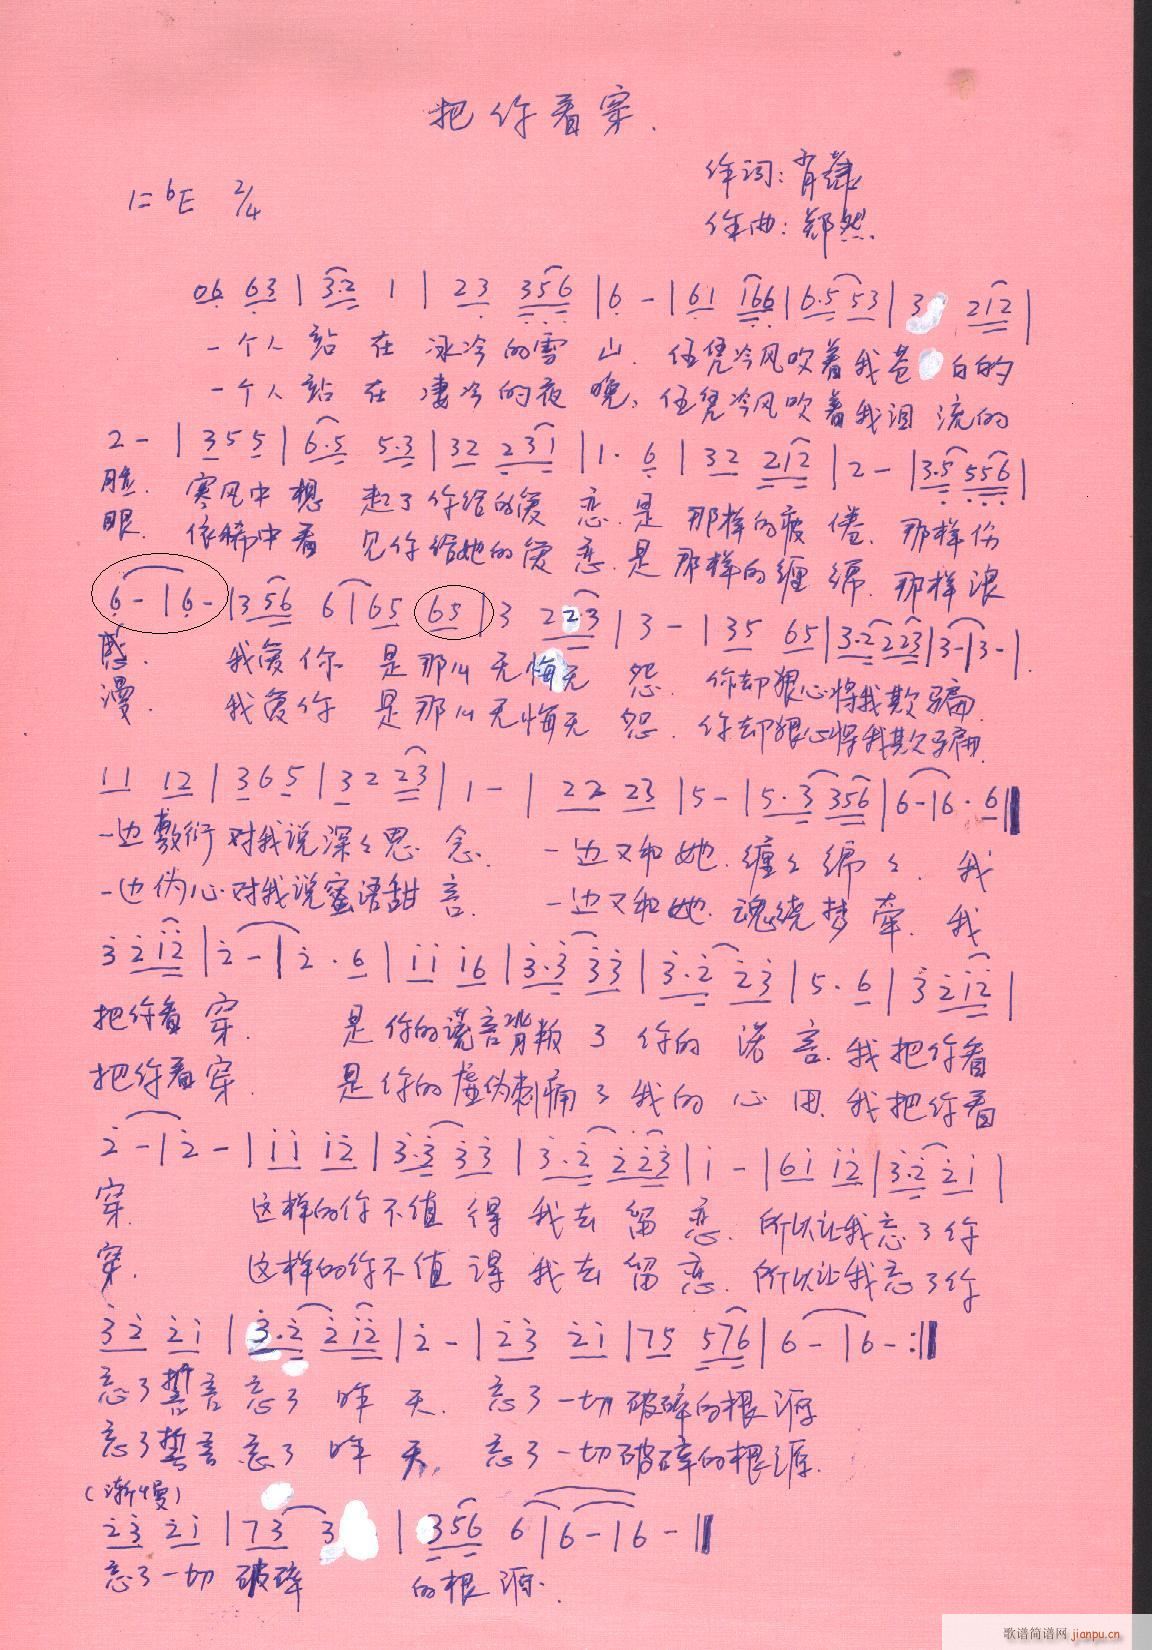 把你看穿.
作词:肖
1=bE 2/4
作曲:郑然
06 63 | 3·2 1 | 23 356 | 6 - | 61 166 | 6·5 53 | 3 212 |
一个人站在冰冷的雪山. 任凭冷风吹着我苍白的
一个人站在凄冷的夜晚, 任凭冷风吹着我泪流的
2 - | 355 | 6·5 5·3 | 32 231 | 1· 6 | 32 212 | 2 - | 3·5 556 |
脸. 寒风中想起了你给的爱恋. 是那样的疲倦. 那样伤
眼. 依稀中看见你给她的爱恋. 是那样的缠绵. 那样浪
6 - | 6 - | 356 6 | 65 65 | 3 22·3 | 3 - | 35 65 | 3·2 223 | 3 - | 3 - |
感. 我爱你是那么无悔无怨. 你却狠心将我欺骗.
漫. 我爱你是那么无悔无怨. 你却狠心将我欺骗.
11 12 | 365 | 32 23 | 1 - | 22 23 | 5 - | 5·3 356 | 6 - | 6· 6 ‖
一边敷衍对我说深々思念. 一边又和她.缠々绵々. 我
一边伪心对我说蜜语甜言. 一边又和她.魂绕梦牵. 我
3 212 | 2 - | 2 · 6 | 11 16 | 3·3 33 | 3·2 23 | 5· 6 | 3 212 |
把你看穿. 是你的谎言背叛了你的诺言. 我把你看
把你看穿. 是你的虚伪刺痛了我的心田. 我把你看
2 - | 2 - | 11 12 | 3·3 33 | 3·2 223 | 1 - | 61 12 | 3·2 21 |
穿. 这样的你不值得我去留恋. 所以让我忘了你
穿. 这样的你不值得我去留恋. 所以让我忘了你
32 21 | 3·2 212 | 2 - | 23 21 | 75 576 | 6 - | 6 - :‖
忘了誓言忘了昨天. 忘了一切破碎的根源
忘了誓言忘了昨天. 忘了一切破碎的根源.
(渐慢)
23 21 | 73 3 | 356 6 | 6 - | 6 - ‖
忘了一切破碎的根源.
歌谱简谱网 jianpu.cn